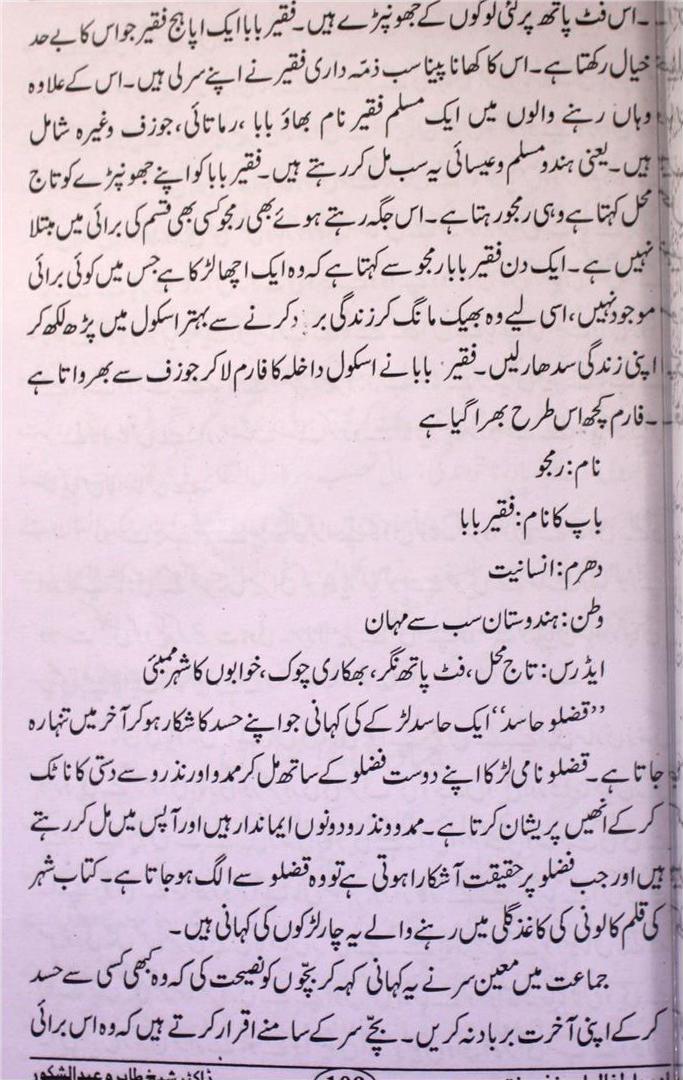 ۔اس فٹ پاتھ پر کئی لوگوں کے جھونپڑے ہیں۔ فقیر بابا ایک اپاہج فقیر جو اس کا بے حد
خیال رکھتا ہے۔ اس کا کھانا پینا سب ذمّہ داری فقیر نے اپنے سر لی ہیں۔ اس کے علاوہ
وہاں رہنے والوں میں ایک مسلم فقیر نام بھاؤ بابا ، رماتائی، جوزف وغیرہ شامل
ہیں۔ یعنی ہندو مسلم و عیسائی یہ سب مل کر رہتے ہیں۔ فقیر بابا کو اپنے جھونپڑے کو تاج
محل کہتا ہے وہی رمجو رہتا ہے۔ اس جگہ رہتے ہوئے بھی رمجو کسی بھی قسم کی برائی میں مبتلا
نہیں ہے۔ ایک دن فقیر بابا رمجو سے کہتا ہے کہ وہ ایک اچھا لڑکا ہے جس میں کوئی برائی
موجود نہیں، اسی لیے وہ بھیک مانگ کر زندگی بر د کرنے سے بہتر اسکول میں پڑھ لکھ کر
اپنی زندگی سدھار لیں۔ فقیر بابا نے اسکول داخلہ کا فارم لا کر جوزف سے بھرواتا ہے
۔ فارم کچھ اس طرح بھرا گیا ہے
نام: رمجو
باپ کا نام: فقیر بابا
دھرم: انسانیت
وطن: ہندوستان سب سے مہان
ایڈرس: تاج محل، فٹ پاتھ نگر، بھکاری چوک، خوابوں کا شہر ممبئی
’’قضلو حاسد‘‘ ایک حاسد لڑکے کی کہانی جو اپنے حسد کا شکار ہو کر آخر میں تنہا رہ
جاتا ہے۔ قضلو نامی لڑکا اپنے دوست فضلو کے ساتھ مل کر ممدو اور نذرو سے دستی کا ناٹک
کر کے انھیں پریشان کرتا ہے۔ ممدو و نذرو دونوں ایماندار ہیں اور آپس میں مل کر رہتے
ہیں اور جب فضلو پر حقیقت آشکارا ہوتی ہے تو وہ قضلو سے الگ ہو جاتا ہے۔ کتاب شہر
کی قلم کالونی کی کاغذ گلی میں رہنے والے یہ چار لڑکوں کی کہانی ہیں۔
جماعت میں معین سر نے یہ کہانی کہہ کر بچّوں کو نصیحت کی کہ وہ کبھی کسی سے حسد
کر کے اپنی آخرت برباد نہ کریں۔ بچّے سر کے سامنے اقرار کرتے ہیں کہ وہ اس برائی
ڈاکٹر شیخ طاہرہ عبدالشکور